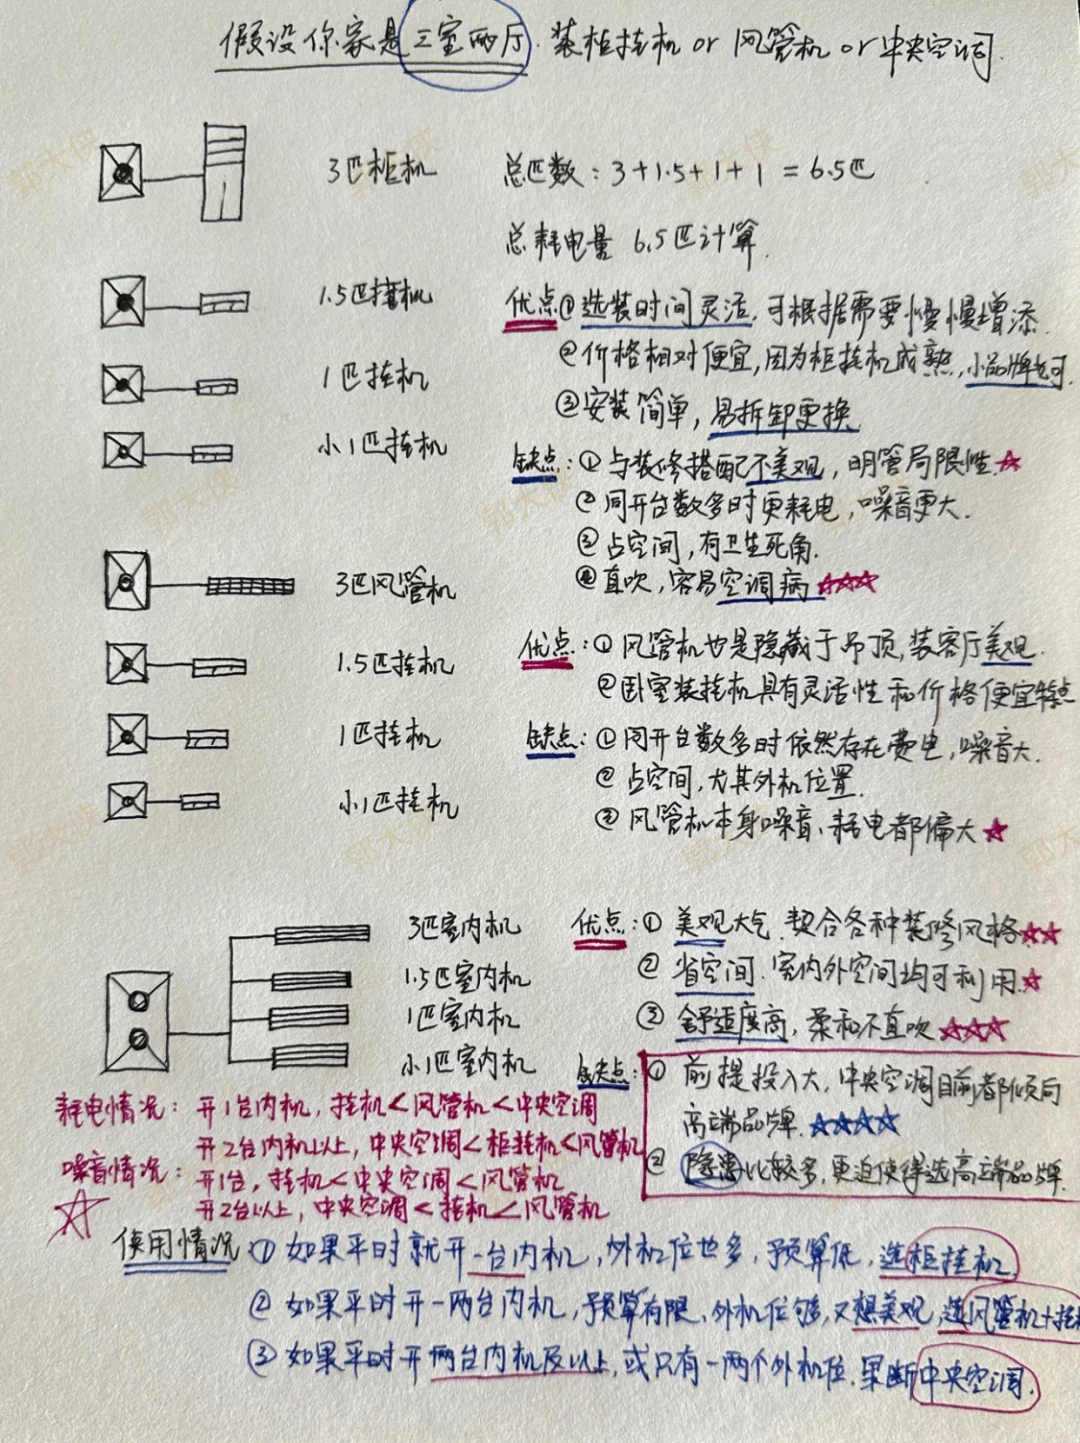 假设你家是三室两厅. 装柜挂机 or 风管机 or 中央空调.
3匹柜机
总匹数：3+1.5+1+1 = 6.5匹
总耗电量 6.5匹计算.
1.5匹挂机
1匹挂机
小1匹挂机
优点①选装时间灵活, 可根据需要慢慢增添.
②价格相对便宜, 因为柜挂机成熟, 小品牌也可.
③安装简单, 易拆卸更换
缺点：①与装修搭配不美观, 明管局限性.☆
②同开台数多时更耗电, 噪音更大.
③占空间, 有卫生死角.
④直吹, 容易空调病 ☆☆☆
3匹风管机
1.5匹挂机
1匹挂机
小1匹挂机
优点：①风管机也是隐藏于吊顶, 装客厅美观.
②卧室装挂机具有灵活性和价格便宜特点
缺点：①同开台数多时依然存在费电, 噪音大.
②占空间, 尤其外机位置.
③风管机本身噪音、耗电都偏大 ☆
3匹室内机
1.5匹室内机
1匹室内机
小1匹室内机
优点：① 美观大气. 契合各种装修风格☆☆
② 省空间. 室内外空间均可利用.☆
③ 舒适度高, 柔和不直吹 ☆☆☆
缺点：① 前提投入大, 中央空调目前都倾向
高端品牌. ☆☆☆☆
② 隐患比较多, 更迫使得选高端品牌.
耗电情况：开1台内机, 挂机<风管机<中央空调
开2台内机以上, 中央空调<柜挂机<风管机
噪音情况：开1台, 挂机<中央空调<风管机
开2台以上, 中央空调<挂机<风管机
使用情况 ① 如果平时就开一台内机, 外机位也多, 预算低, 选柜挂机.
② 如果平时开一两台内机, 预算有限、外机位够, 又想美观, 选风管机+挂机
③ 如果平时开两台内机及以上, 或只有一两个外机位. 果断中央空调.
郭大侠